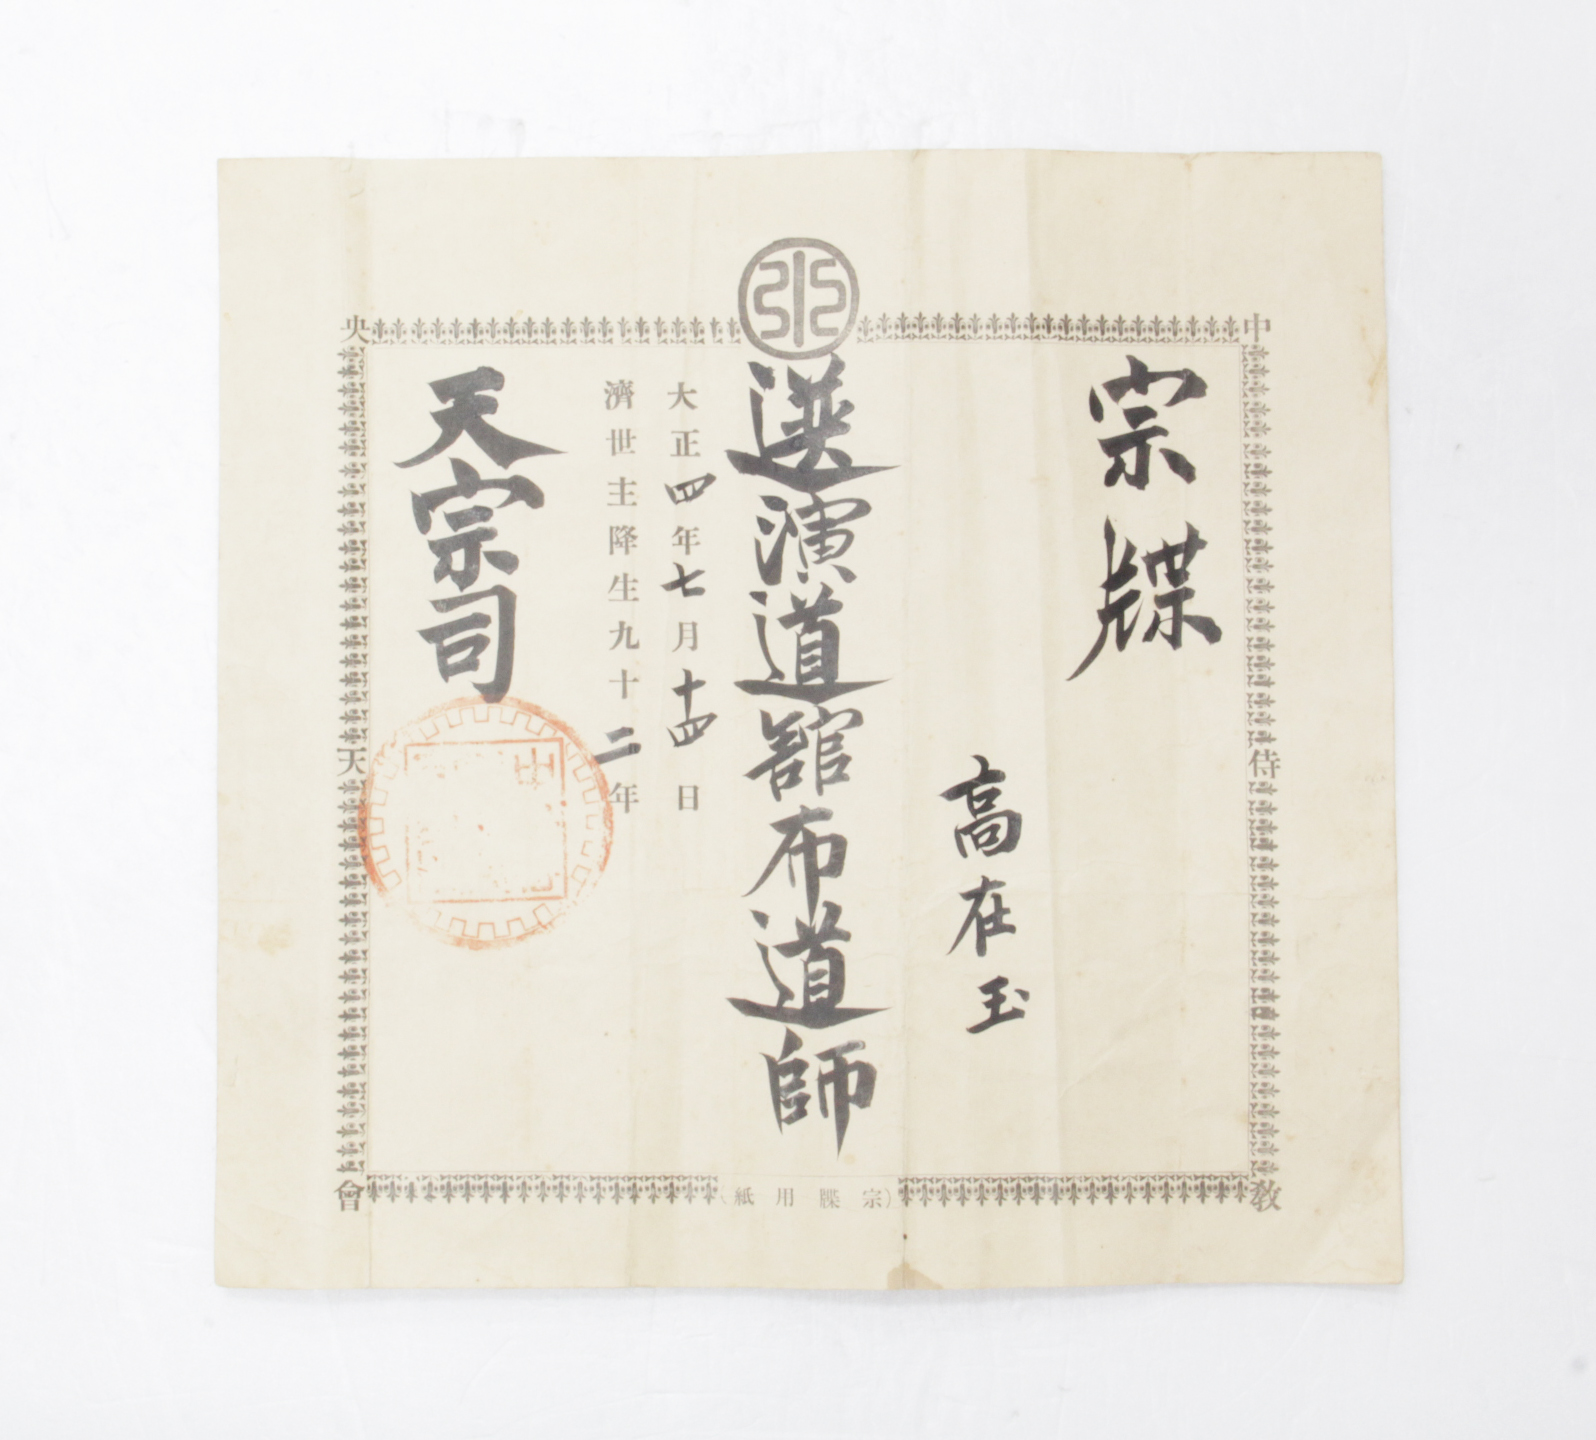 宗牒
高在玉
選演道舘布道師
大正四年七月十四日
濟世主降生九十二年
天宗司
中央
侍天
教會
(宗牒用紙)